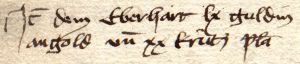 Jt̄ dem Eberhart lx guldin
angold vn̄ xx krütz pla